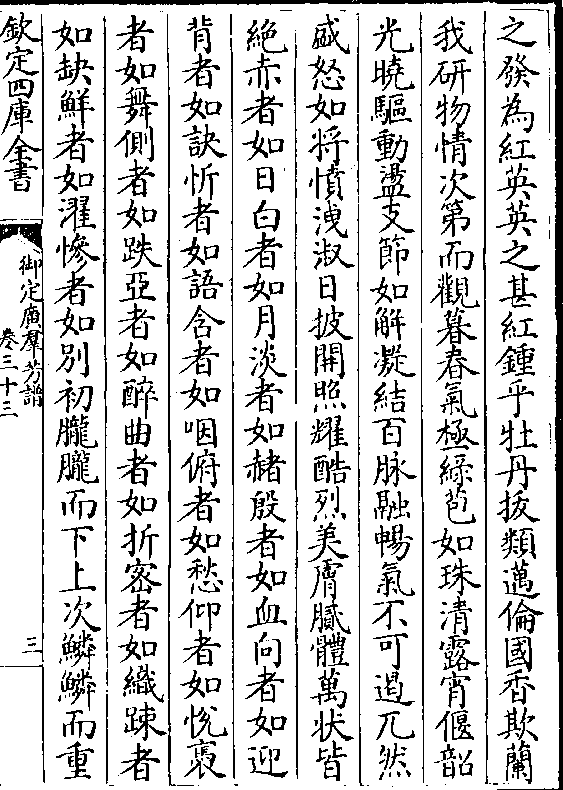 之發為紅英英之甚紅鍾乎牡丹拔類邁倫國香欺蘭
我研物情次第而觀暮春氣極綠苞如珠清露宵偃韶
光曉驅動盪支節如解凝結百脉融暢氣不可遏兀然
盛怒如將憤洩淑日披開照耀酷烈美膚膩體萬状皆
絶赤者如日白者如月淡者如赭殷者如血向者如迎
背者如訣忻者如語含者如咽俯者如愁仰者如悅裛
者如舞側者如跌亞者如醉曲者如折密者如織踈者
如缺鮮者如濯慘者如別初朧朧而下上次鱗鱗而重
欽定四庫全書
御定廣羣芳譜
卷三十三
三